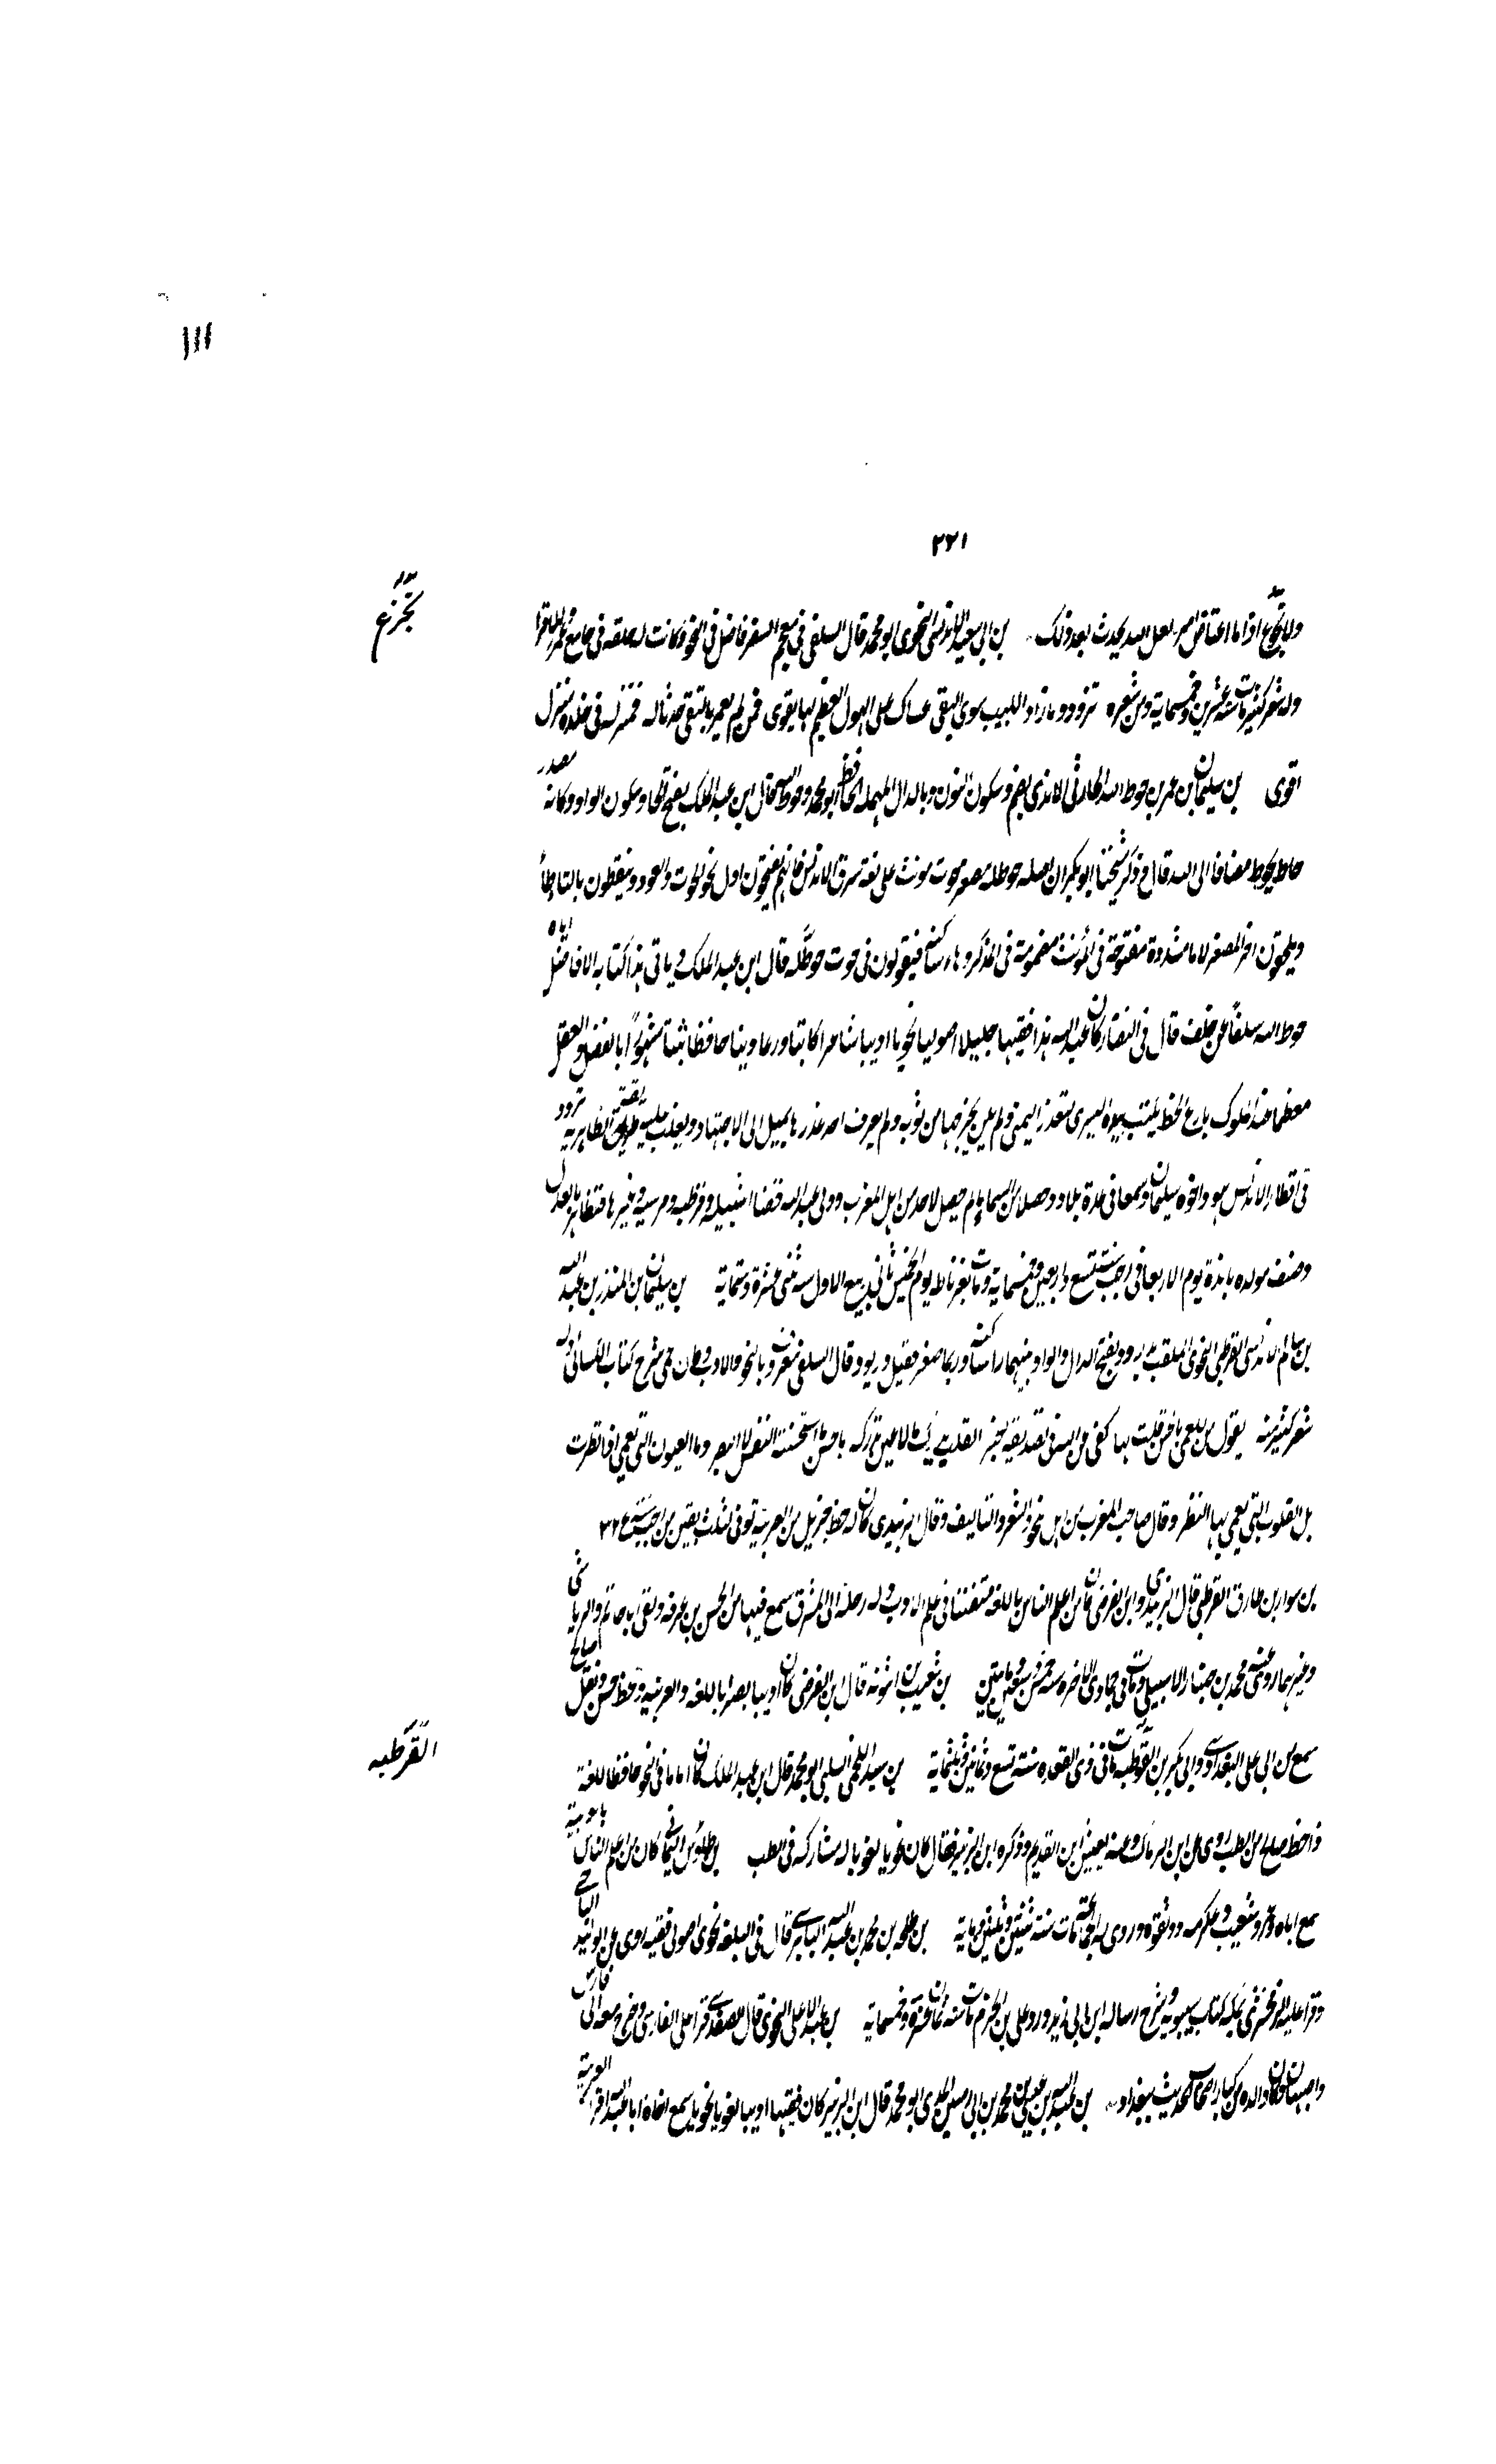 ٢٢١
تجزع
ولا تجزع اذا ما اعتاض امر لعل الله يحدث بعد ذلك بن ابي سعيد الاندلسي النحوي ابو محمد قال السلفي في معجم السفر فاضل في النحو وكانت له حلقة في جامع
وله شعر كثير مات سنة عشرين وخمسماية ومن شعره تزود وما زاد اللبيب سوى التقى عساك على الهول العظيم بها تقوى فمن لم يعمر بالتقى جدثا له فمنزله في خلده منزل
اقوى بن سليمان بن عمر بن حوط الله الحارثي الاندي بضم وسكون النون وبالدال المهملة الحافظ ابو محمد وحوط الله قال ابن عبد الملك بفتح الحا وسكون الواو وكانه مصدر
حاط يحوط مضافا الى الله قال وذكر شيخنا ابو بكر ان اصله حوطله مصغر حوت مونث على لغة شرق الاندلس فانهم يفتحون اول نحو الحوت والعود وينطقون بالتا طاء
ويلحقون اخر المصغر لاما مشددة مفتوحة في المؤنث مضمومة في المذكر وهاء ساكنة فيقولون في حوت حوطله قال ابن عبد الملك ويأتي هذا كتابه الافاضل اباه
حوط الله سلفا عن خلف قال في النضار كان عبد الله هذا فقيها جليلا اصوليا نحويا اديبا شاعرا كاتبا ورعا دينا حافظا ثبتا مشهورا بالفضل والعقل
معظما عند الملوك بارع الخط يكتب بيده اليسرى لتعذر اليمنى ولم يكن يخرجها من ثوبه ولم يعرف احد عذرها يميل الى الاجتهاد ويغلب عليه طريقة الظاهرية تردد
في اقطار الاندلس هو واخوه سليمان وسمعا في عدة بلاد وحصلا من السماع ما لم يحصل لاحد من اهل المغرب وولي عبد الله قضا اشبيلية وقرطبة ومرسية وغيرها فتظاهر بالعدل
وصنف مولده باندة يوم الاربعا في رجب سنة تسع واربعين وخمسماية ومات بغرناطة يوم الخميس ثاني ربيع الاول سنة ثنتي عشرة وستماية بن سليمان بن المنذر بن عبد الله
بن سالم الاندلسي القرطبي النحوي الملقب بدرود بفتح الدال والواو بينهما را ساكنة وربما صغر فقيل دريود وقال السلفي مشهور بالنحو والادب وكان اعمى شرح كتاب الكسائي وله
شعر كثير منه يقول من للعمى بالحسن قلت بها كفى عن الله في تصديقه الخبر القلب يدرك ما لا عين تدركه والحسن ما استحسنته النفس لا البصر وما العيون التي تعمى اذا نظرت
بل القلوب التي يعمى بها النظر وقال صاحب المغرب من اهل النحو والشعر والتاليف وقال الزبيدي كان له حظ جزيل من العربية توفي لثلاث بقين من رجب سنة
بن سوار بن طارق القرطبي قال الزبيدي وابن الفرضي كان من اعلم الناس باللغة متفننا في علم الادب وله رحلة الى المشرق سمع فيها من الحسن بن عرفة ولقي ابا حاتم والرياشي
وغيرهما روى عنه محمد بن جنادة الاشبيلي ومات في جمادى الاخرة سنة خمس وسبعين ومايتين بن شعيب بن قال ابن الفرضي كان اديبا بصيرا باللغة والعربية وحظ حسن ونقل صالح
القرطبه
سمع من ابي علي البغدادي وابي بكر بن القوطية مات في ذي القعدة سنة تسع وثمانين وثلثماية بن سيد اللخمي ابو محمد قال ابن عبد الملك كان اماما في النحو حافظا للغة
ذا حظ صالح من الطب روى عن ابن الرماك وعنه يعيش ابن القديم وذكره ابن الزبير فقال كان نحويا لغويا له مشاركة في الطب بن طاوس اليماني كان من اعلم الناس بالعربية
سمع اباه وعمرو بن شعيب وعكرمة ووثقوه وروى له الجماعة مات سنة ثنتين وثلثين وماية بن طلحة بن محمد بن عبد الله اليابري قال في البلغة نحوي اصولي فقيه روى عن ابي الوليد الباجي
وقرا عليه الزمخشري بمكة كتاب سيبويه وشرح رسالة ابن ابي زيد ورد على ابن حزم مات سنة ثمان عشرة وخمسماية بن عبد الاعلى النحوي قال الصفدي قرا على الفارسي وخرج معه الى فارس
واصبهان وكان والده من كبار اصحاب الحديث ببغداد بن عبد الله بن عيسى بن محمد بن ابي ابو محمد قال ابن الزبير كان فقيها اديبا لغويا نحويا سمع اخاه ابا عبد الله اقرا العربية